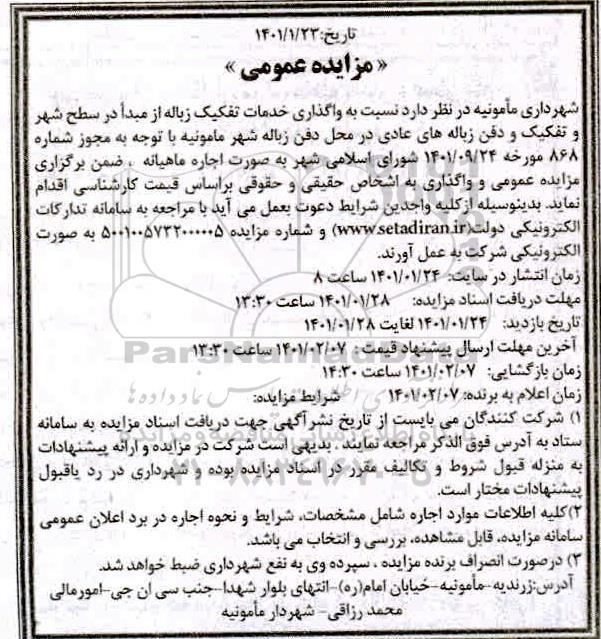 تاریخ:۱۴۰۱/۱/۲۳
« مزایده عمومی »
شهرداری مأمونیه در نظر دارد نسبت به واگذاری خدمات تفکیک زباله از مبدأ در سطح شهر
و تفکیک و دفن زباله های عادی در محل دفن زباله شهر مامونیه با توجه به مجوز شماره
۸۶۸ مورخه ۱۴۰۱/۰۹/۲۴ شورای اسلامی شهر به صورت اجاره ماهیانه ، ضمن برگزاری
مزایده عمومی و واگذاری به اشخاص حقیقی و حقوقی براساس قیمت کارشناسی اقدام
نماید. بدینوسیله از کلیه واجدین شرایط دعوت بعمل می آید با مراجعه به سامانه تدارکات
الکترونیکی دولت(www.setadiran.ir) و شماره مزایده ۵۰۰۱۰۰۵۷۳۲۰۰۰۰۰۵ به صورت
الکترونیکی شرکت به عمل آورند.
زمان انتشار در سایت: ۱۴۰۱/۰۱/۲۴ ساعت ۸
مهلت دریافت اسناد مزایده: ۱۴۰۱/۰۱/۲۸ ساعت ۱۳:۳۰
تاریخ بازدید: ۱۴۰۱/۰۱/۲۴ لغایت ۱۴۰۱/۰۱/۲۸
آخرین مهلت ارسال پیشنهاد قیمت : ۱۴۰۱/۰۲/۰۷ ساعت ۱۳:۳۰
ParsNamadData
زمان بازگشایی: ۱۴۰۱/۰۲/۰۷ ساعت ۱۴:۳۰
زمان اعلام به برنده: ۱۴۰۱/۰۲/۰۷ شرایط مزایده:
۱) شرکت کنندگان می بایست از تاریخ نشر آگهی جهت دریافت اسناد مزایده به سامانه
ستاد به آدرس فوق الذکر مراجعه نمایند ، بدیهی است شرکت در مزایده و ارائه پیشنهادات
به منزله قبول شروط و تکالیف مقرر در اسناد مزایده بوده و شهرداری در رد یاقبول
پیشنهادات مختار است.
۲)کلیه اطلاعات موارد اجاره شامل مشخصات، شرایط و نحوه اجاره در برد اعلان عمومی
سامانه مزایده، قابل مشاهده، بررسی و انتخاب می باشد.
۳) درصورت انصراف برنده مزایده ، سپرده وی به نفع شهرداری ضبط خواهد شد.
آدرس:زرندیه-مأمونیه-خیابان امام(ره)-انتهای بلوار شهدا-جنب سی ان جی-امورمالی
محمد رزاقی- شهردار مأمونیه